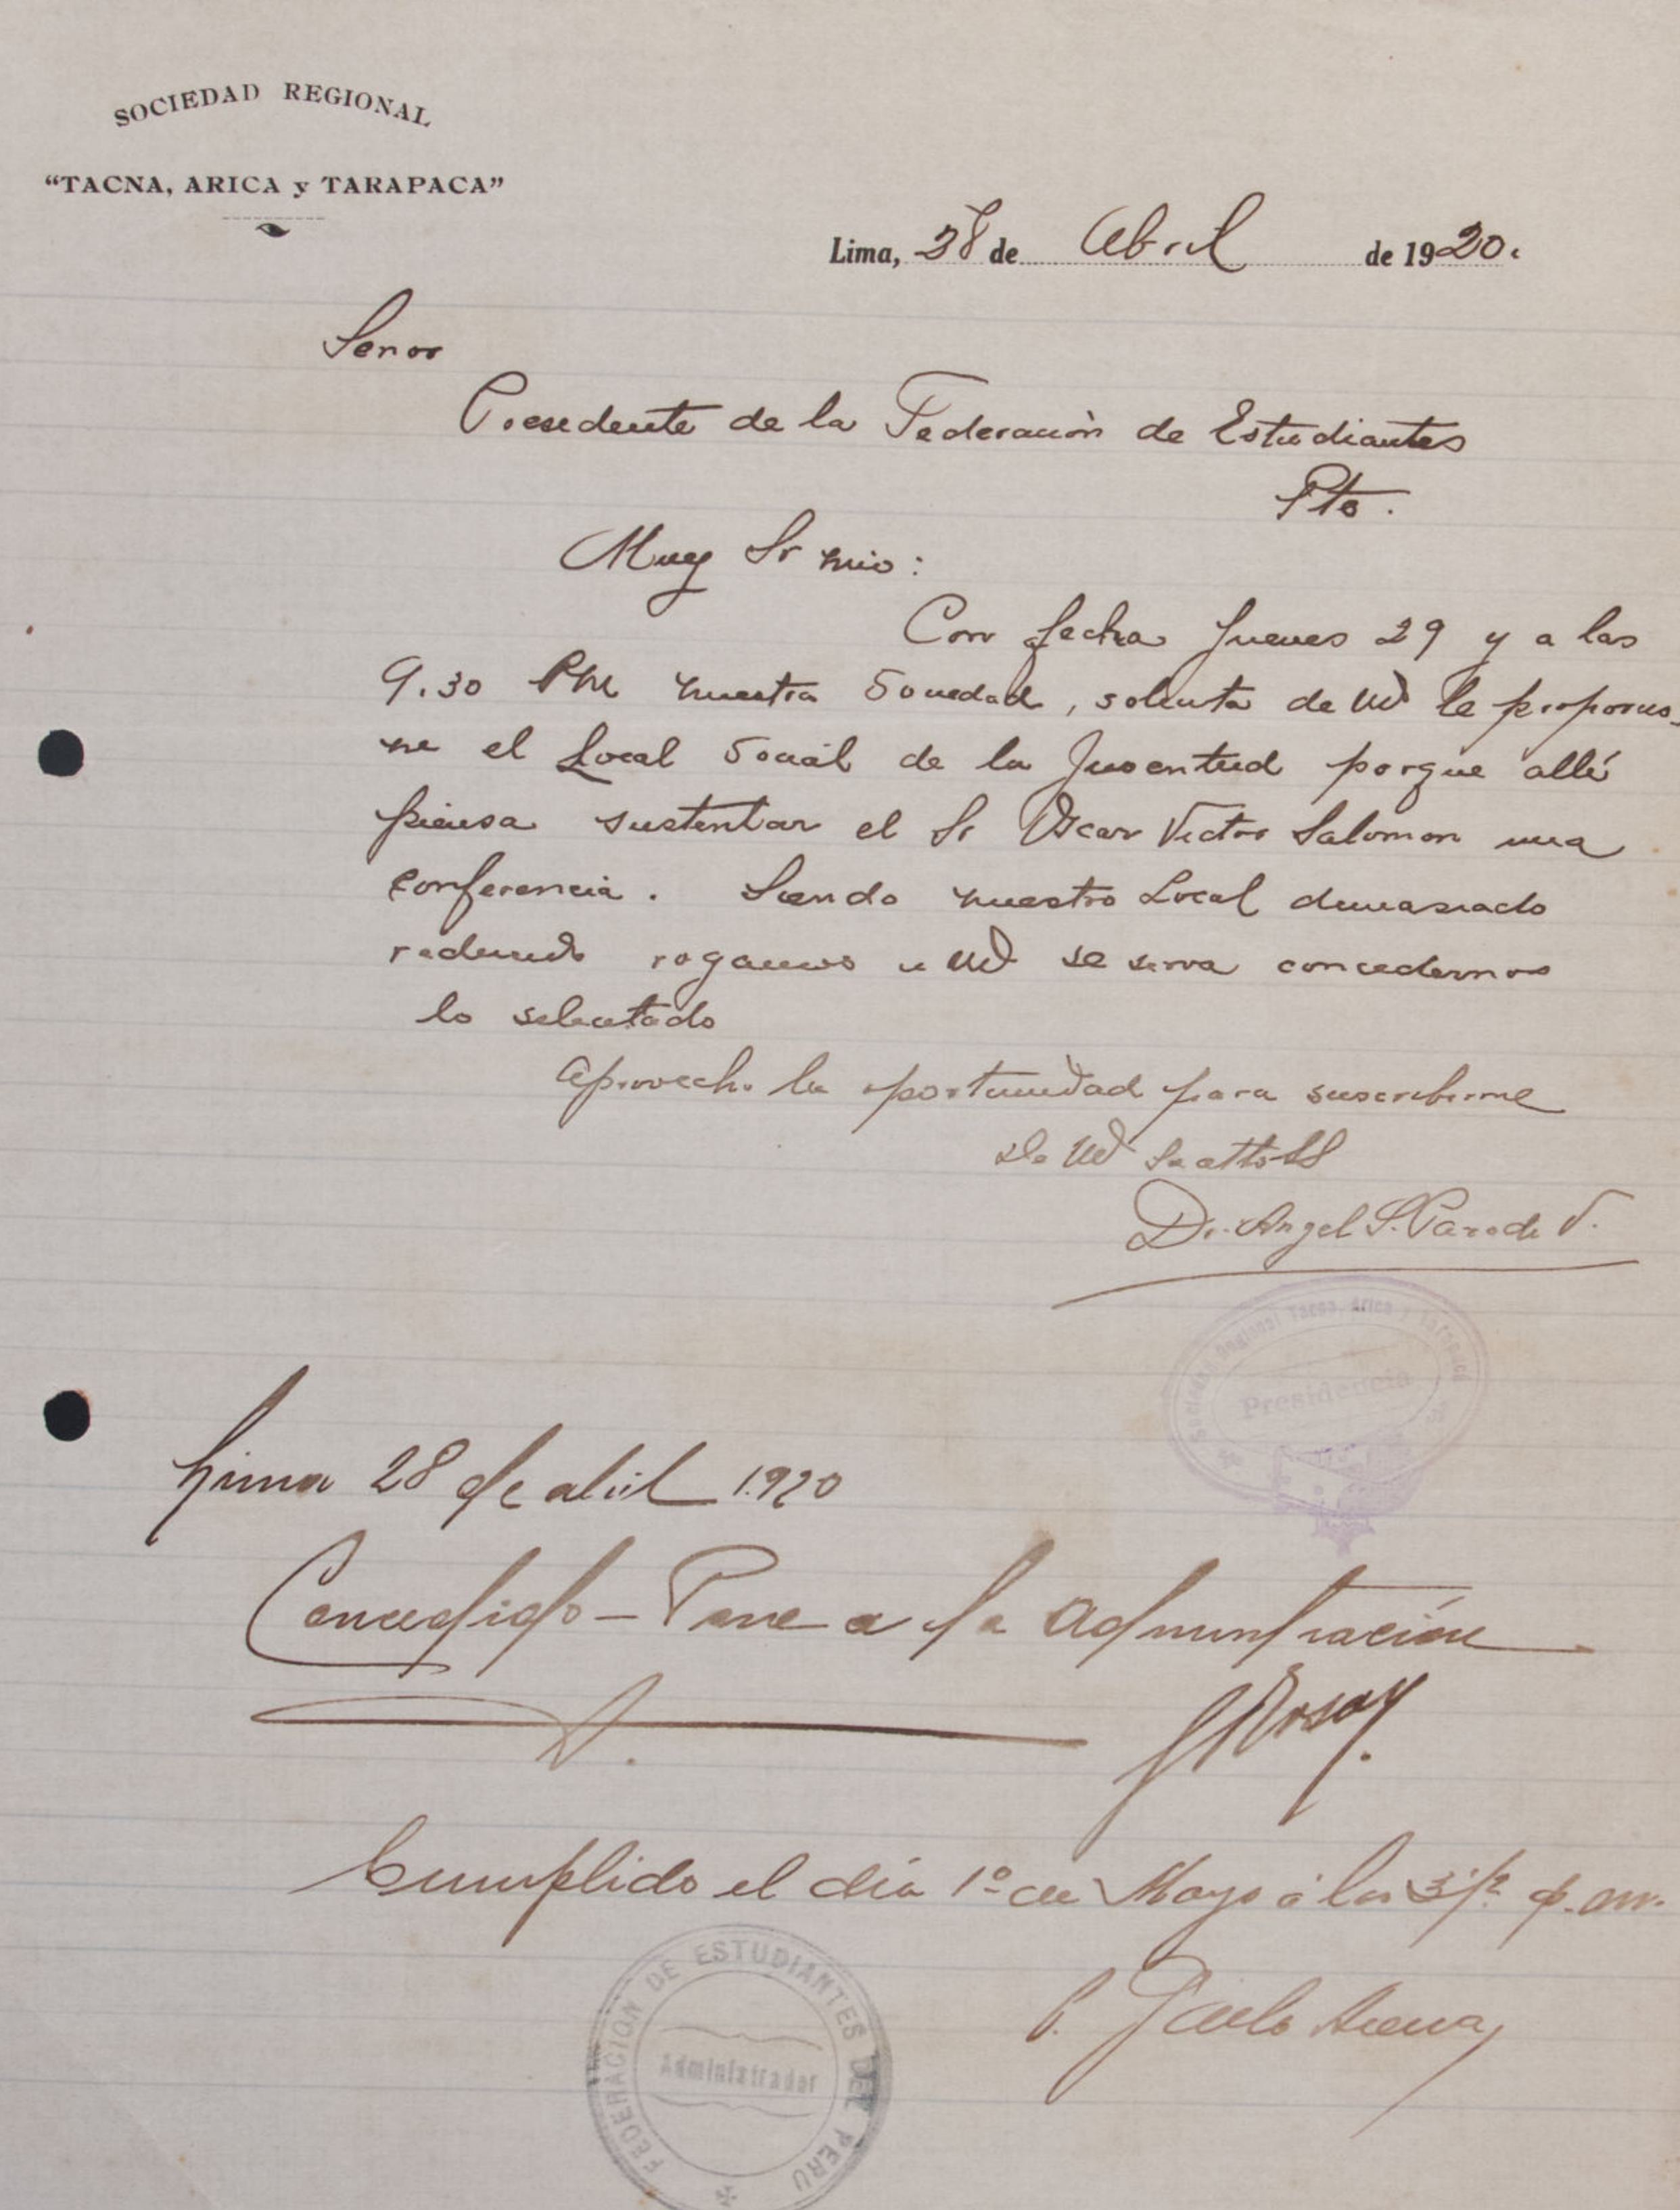 SOCIEDAD REGIONAL
"TACNA, ARICA y TARAPACA"
Lima, 28 de Abril de 1920.
Señor
Presidente de la Federación de Estudiantes
Pte.
Muy Sr mio:
Con fecha Jueves 29 y a las
9.30 PM nuestra Sociedad, solicita de Ud le proporcio-
ne el Local Social de la Juventud porque allí
piensa sustentar el Sr Oscar Victor Salomon una
conferencia. Siendo nuestro Local demasiado
reducido rogamos a Ud se sirva concedernos
lo solicitado
Aprovecho la oportunidad para suscribirme
de Ud Su atto SS
Dr. Angel S. Parodi V.
Sociedad Regional Tacna, Arica y Tarapacá
Presidencia
Lima 28 de abril 1920
Concedido - Pase a la Administración
Cumplido el día 1º de Mayo á las 3½ p.m.
FEDERACION DE ESTUDIANTES DEL PERU
Administrador